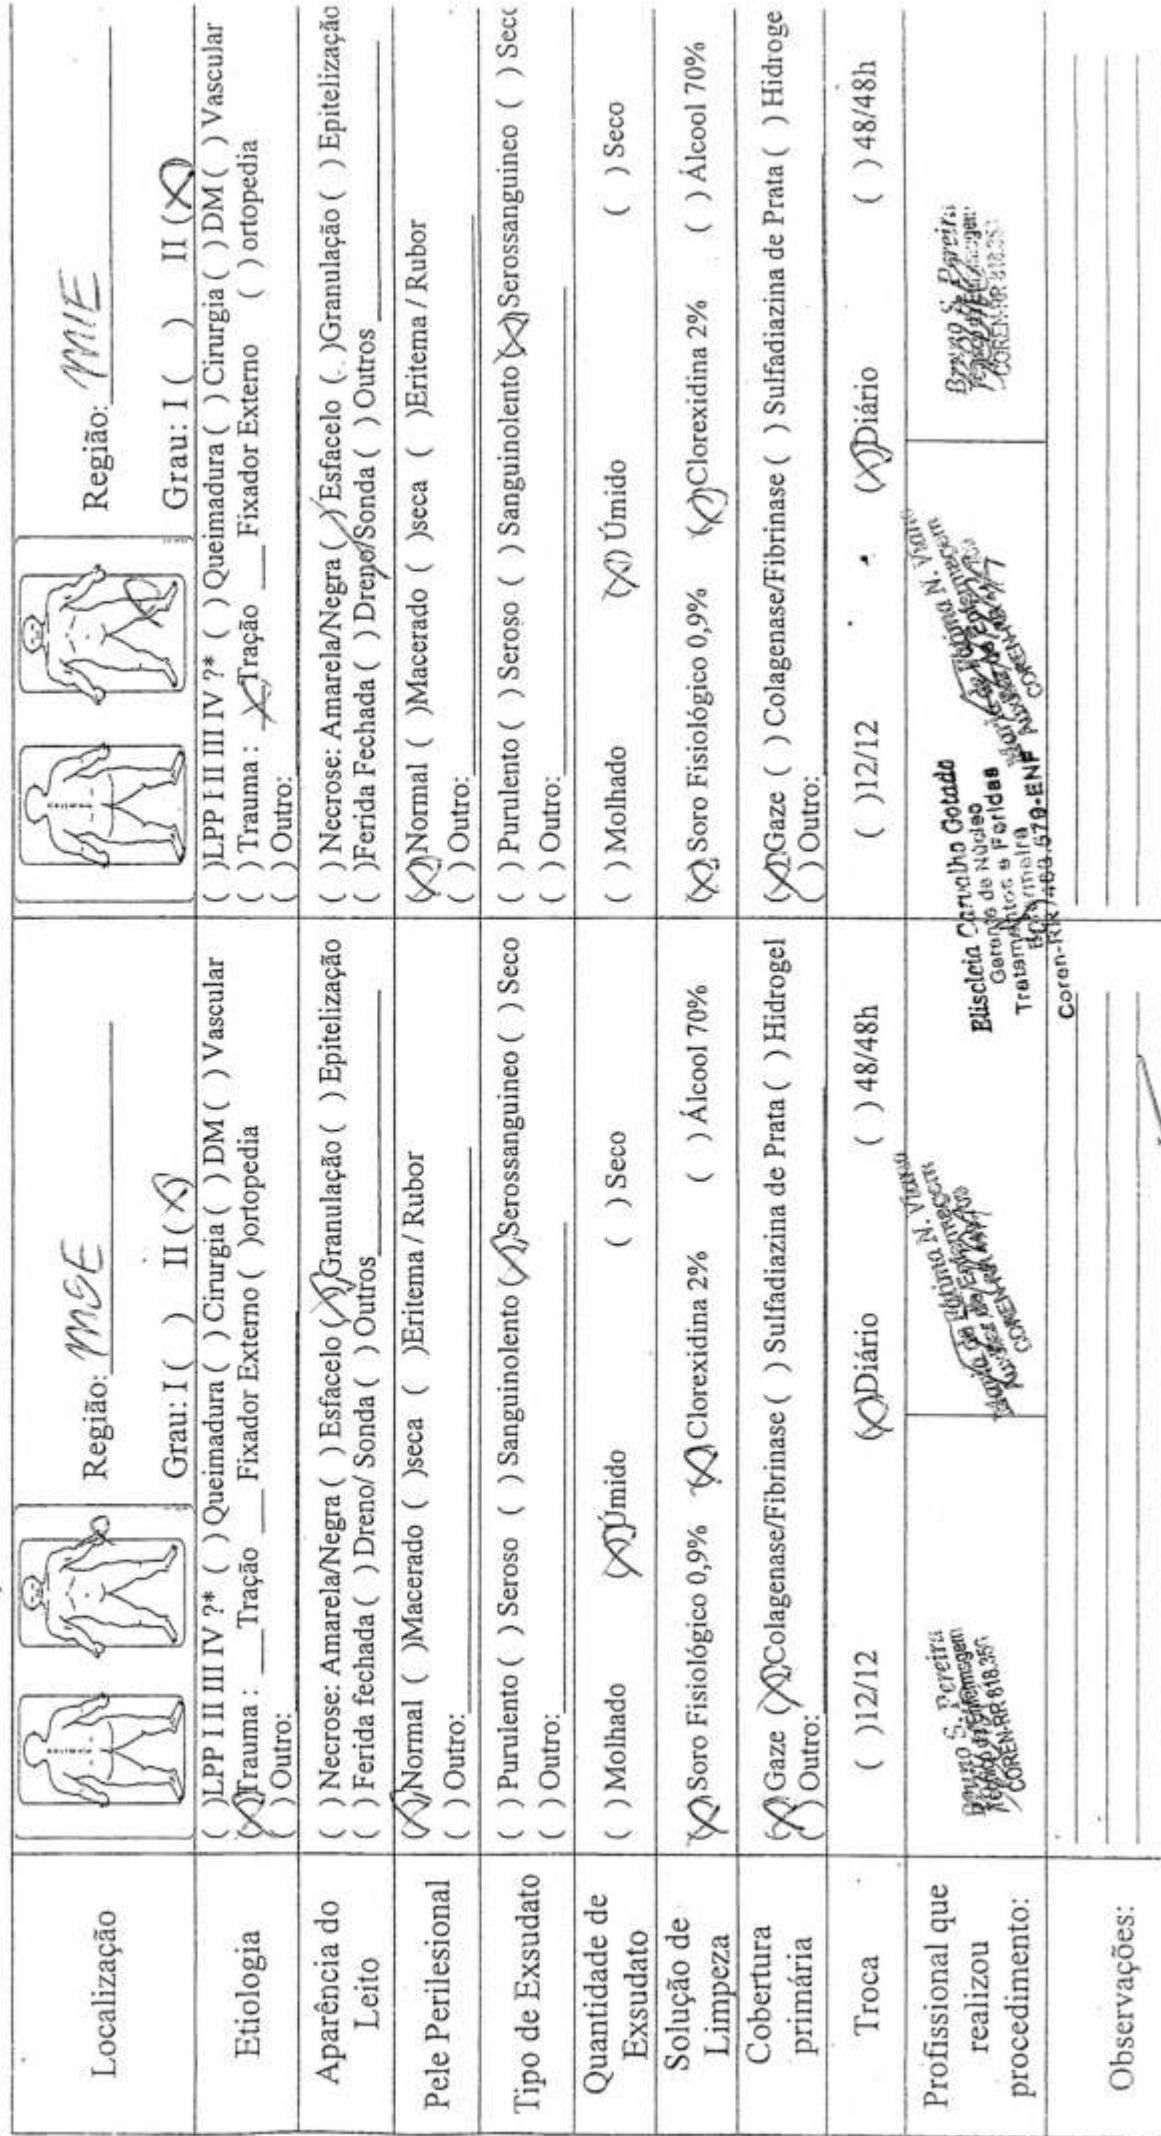 Localização
Região: MSE
Grau: I ( ) II (X)
Região: MIE
Grau: I ( ) II (X)
Etiologia
( )LPP I II III IV ?* ( ) Queimadura ( ) Cirurgia ( ) DM ( ) Vascular
(X)Trauma : ___Tração ___ Fixador Externo ( )ortopedia
( ) Outro:
( )LPP I II III IV ?* ( ) Queimadura ( ) Cirurgia ( ) DM ( ) Vascular
( ) Trauma : X Tração ___ Fixador Externo ( ) ortopedia
( ) Outro:
Aparência do
Leito
( ) Necrose: Amarela/Negra ( ) Esfacelo (X)Granulação ( ) Epitelização
( ) Ferida fechada ( ) Dreno/ Sonda ( ) Outros
( ) Necrose: Amarela/Negra ( ) Esfacelo ( )Granulação ( ) Epitelização
( )Ferida Fechada ( ) Dreno/Sonda ( ) Outros
Pele Perilesional
(X)Normal ( )Macerado ( )seca ( )Eritema / Rubor
( ) Outro:
(X)Normal ( )Macerado ( )seca ( )Eritema / Rubor
( ) Outro:
Tipo de Exsudato
( ) Purulento ( ) Seroso ( ) Sanguinolento (X)Serossanguineo ( ) Seco
( ) Outro:
( ) Purulento ( ) Seroso ( ) Sanguinolento (X)Serossanguineo ( ) Secc
( ) Outro:
Quantidade de
Exsudato
( ) Molhado (X)Úmido ( ) Seco
( ) Molhado (X) Úmido ( ) Seco
Solução de
Limpeza
(X)Soro Fisiológico 0,9% (X)Clorexidina 2% ( ) Álcool 70%
(X) Soro Fisiológico 0,9% (X)Clorexidina 2% ( ) Álcool 70%
Cobertura
primária
(X)Gaze (X)Colagenase/Fibrinase ( ) Sulfadiazina de Prata ( ) Hidrogel
( ) Outro:
(X)Gaze ( ) Colagenase/Fibrinase ( ) Sulfadiazina de Prata ( ) Hidroge
( ) Outro:
Troca
( )12/12 (X)Diário ( ) 48/48h
( )12/12 (X)Diário ( ) 48/48h
Profissional que
realizou
procedimento:
Bruno S. Pereira
COREN-RR 818.350
Fatima N. Viana
Eliscleia Carvalho Gotado
Gerente de Núcleo
Tratamentos e Feridas
Enfermeira
Coren-RR/468.579-ENF
Fatima N. Viana
Bruno S. Pereira
Observações: